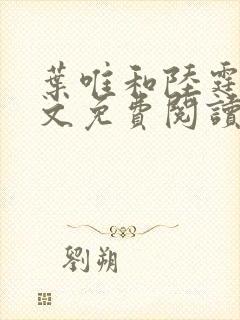 葉唯和陸霆
文免費閱讀
劉朔